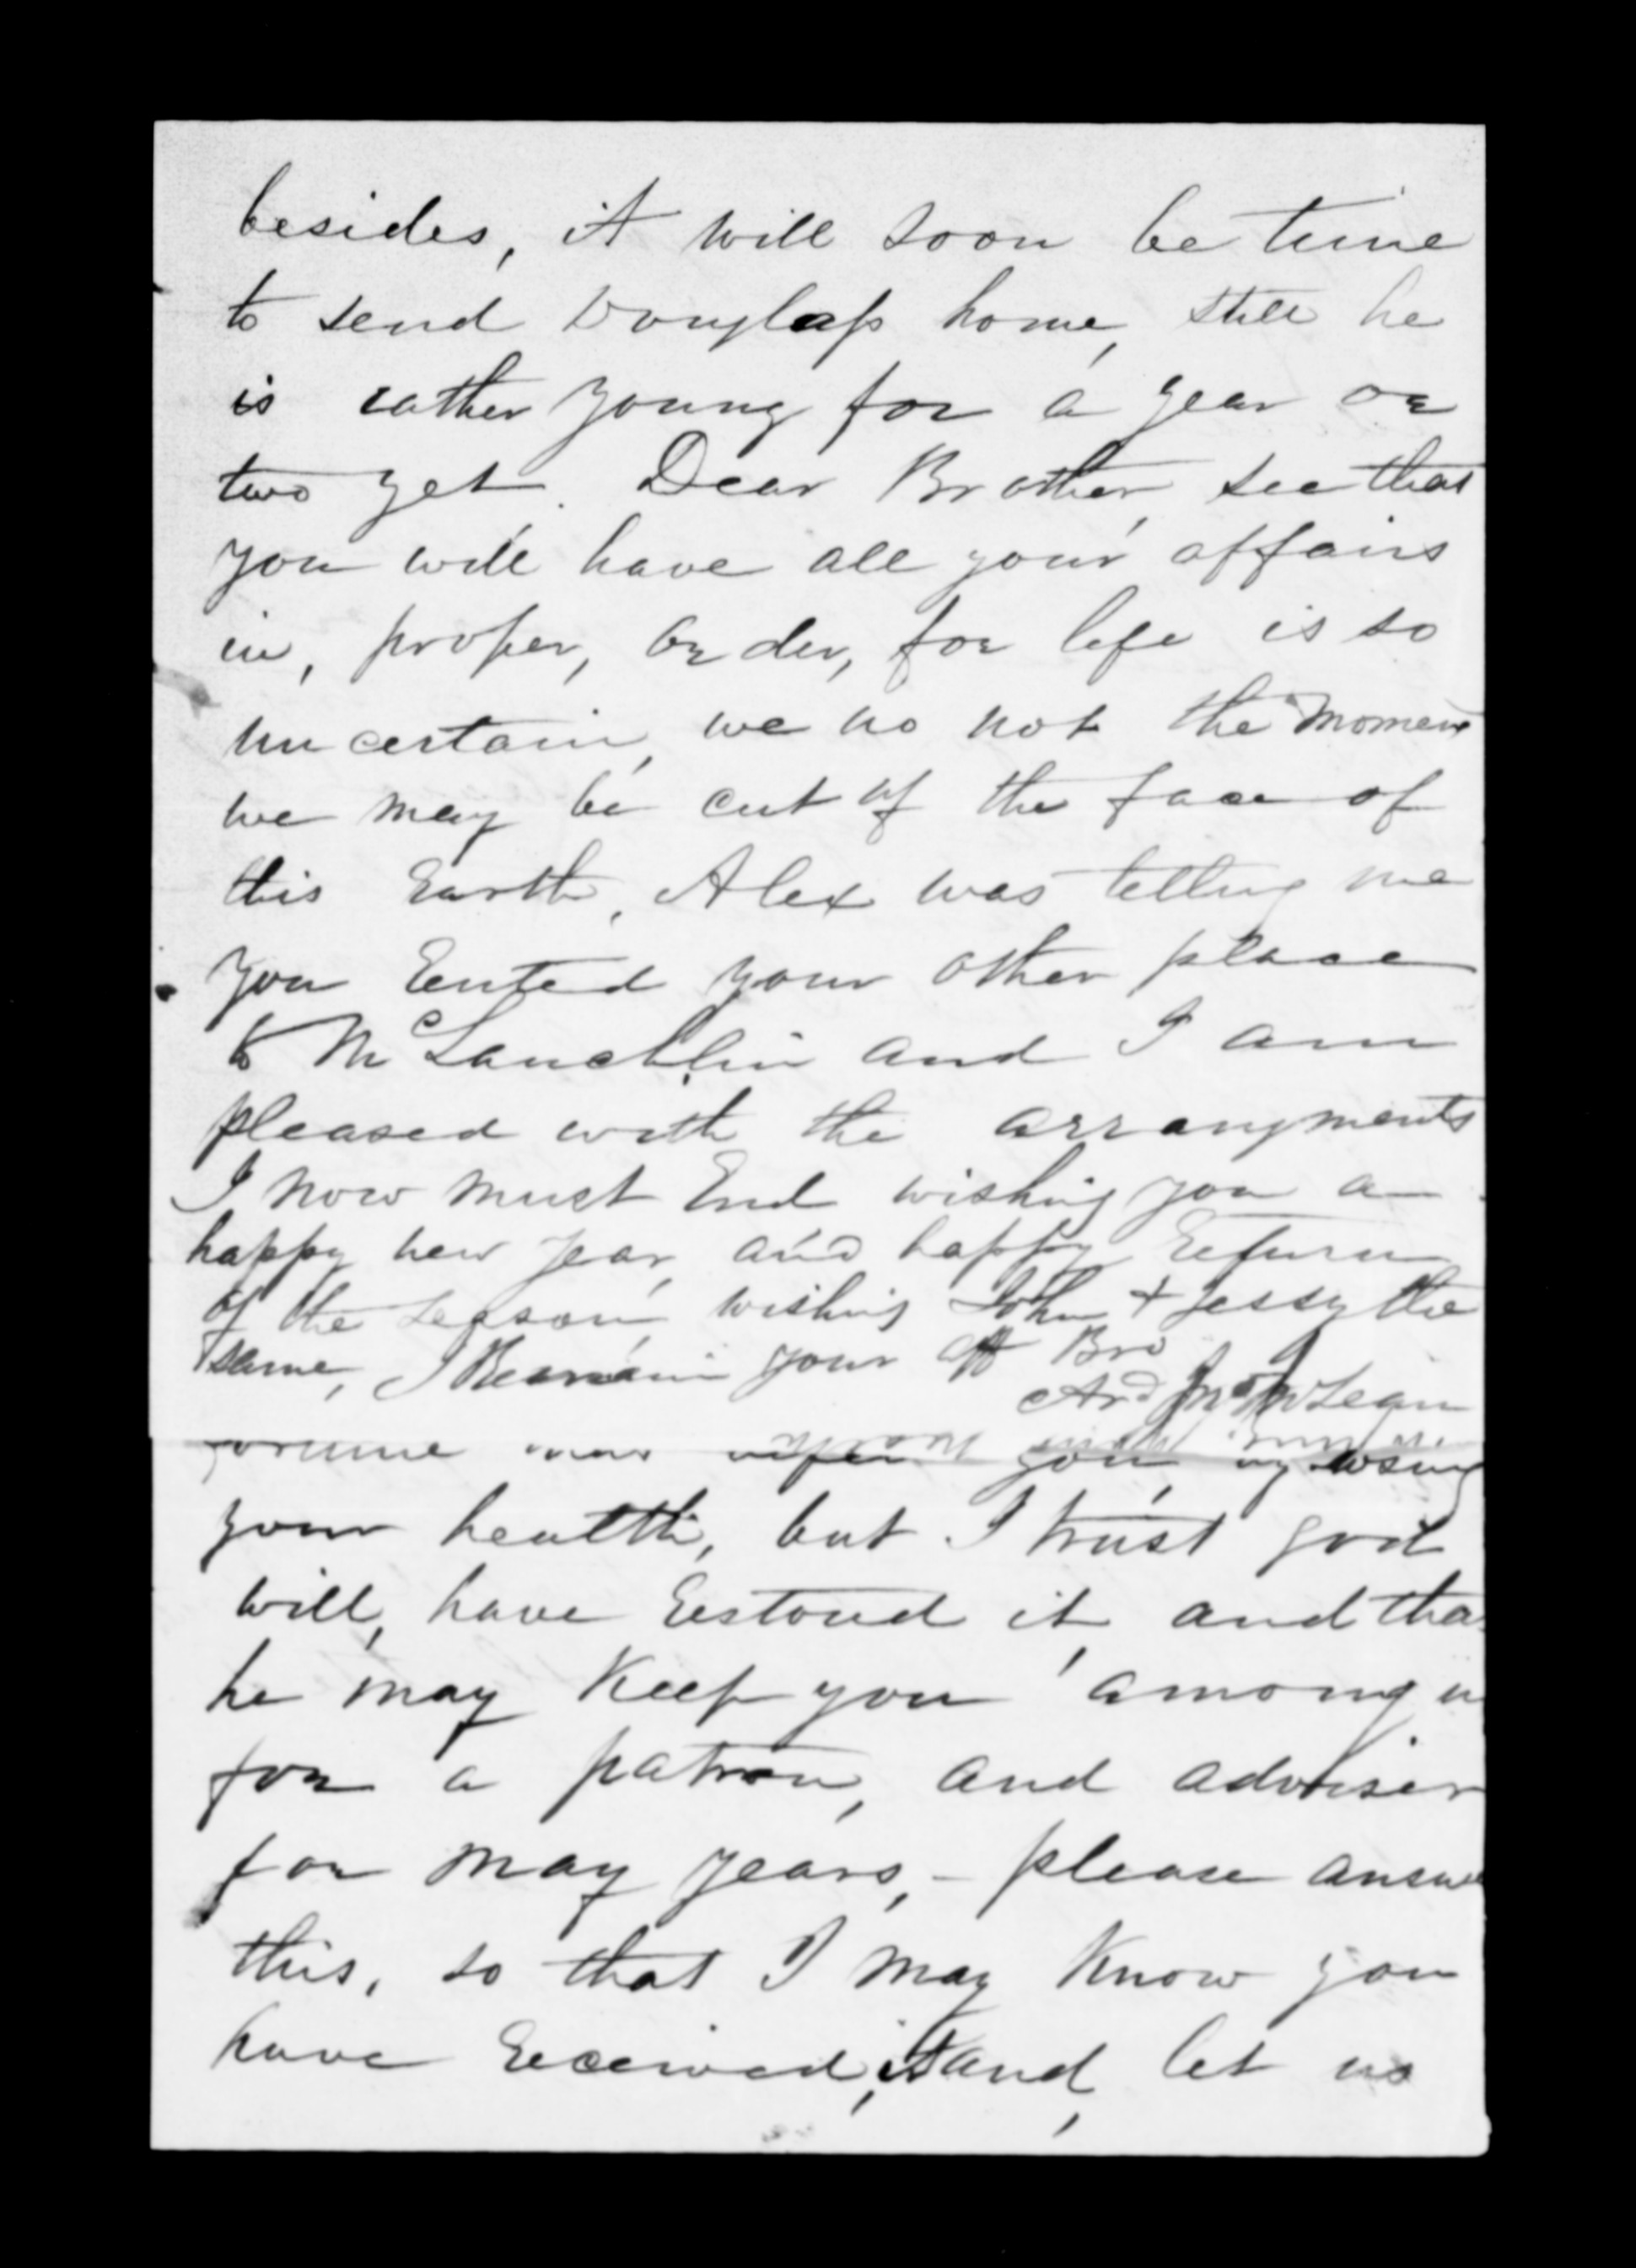 besides, it will soon be time
to send Douglass home, still he
is rather young for a year or
two yet. Dear Brother, see that
you will have all your affairs
in, proper, order, for life is so
uncertain, we no not the moment
we may be cut of the face of
this Earth, Alex was telling me
you Rented your other place
to McLauchlin and I am
pleased with the arrangments
I now must End wishing you a
happy new year, and happy Return
of the season, wishing John & Jessy the
same, I Remain your aff Bro
Ard McLean
upon you, by losing
your health, but I trust god
will, have Restored it, and tha
he may Keep you among u
for a patron, and adviser
for may years, - please answe
this, so that I may Know you
have Received, it and, let us